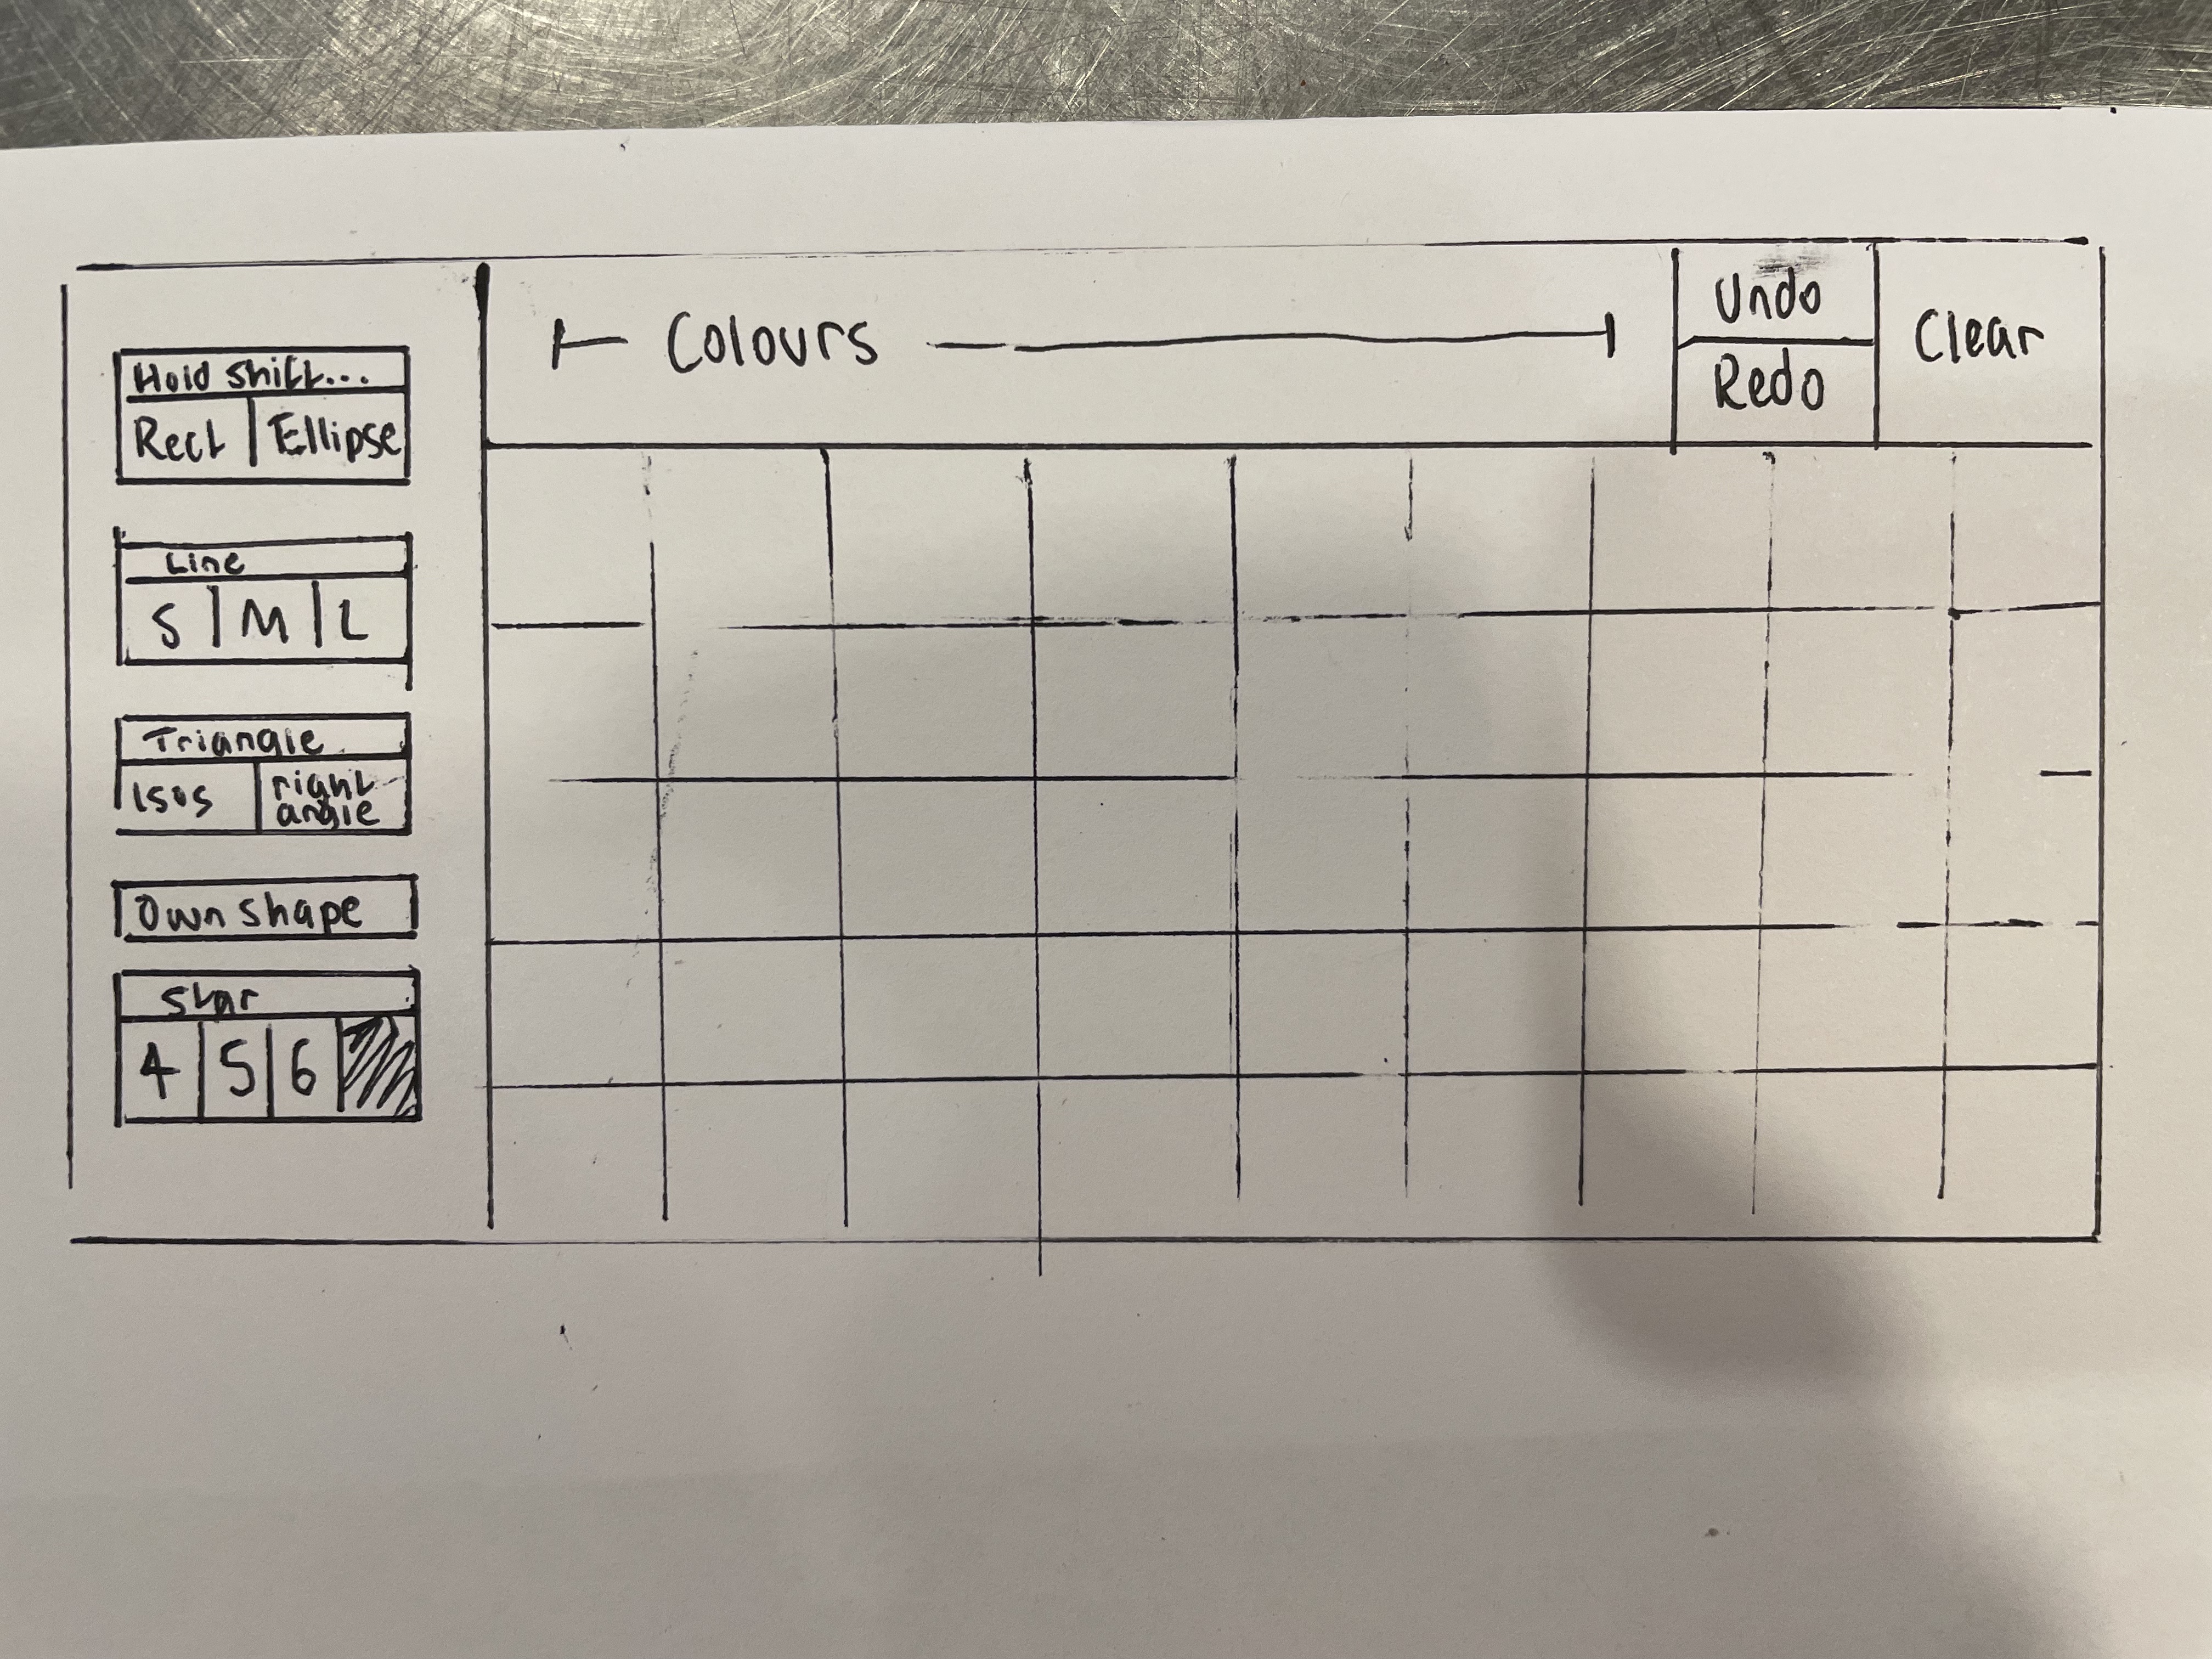 Hold shift...
Rect Ellipse
Line
S M L
Triangle
isos right angle
Own shape
Star
4 5 6
Colours
Undo
Redo
Clear